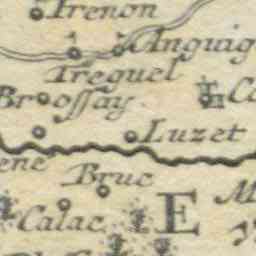 Trenon
Anguig
Treguel
Brossay
Co
Luzet
ene
Bruc
M
Calac
E